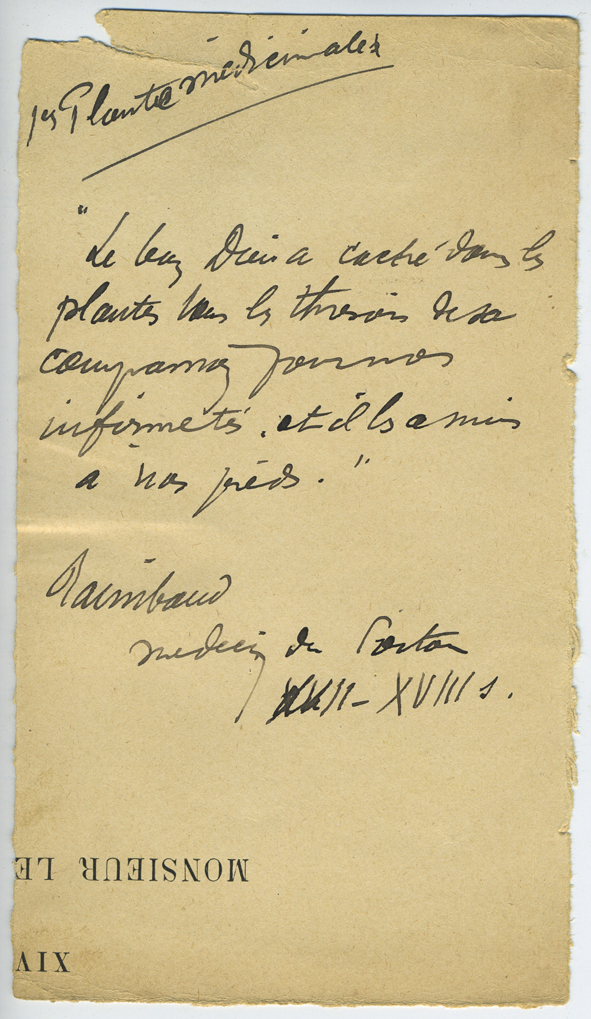 les Plantes medicinales
"Le bon Dieu a caché dans les
plantes tous les thresors de sa
compassion pour nos
infirmetés, et il les a mis
à nos pieds."
Raimbaud
medecin du Poitou
XVII-XVIII s.
MONSIEUR LE
XIV